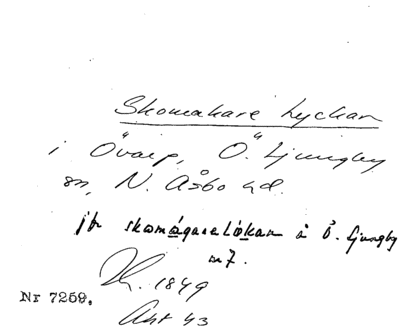 Skomakare Lyckan
i Övarp, Ö. Ljungby
sn, N. Åsbo hd.
jfr skomågarelökan å Ö. Ljungby
nr 7.
1849
Nr 7259.
Akt 43